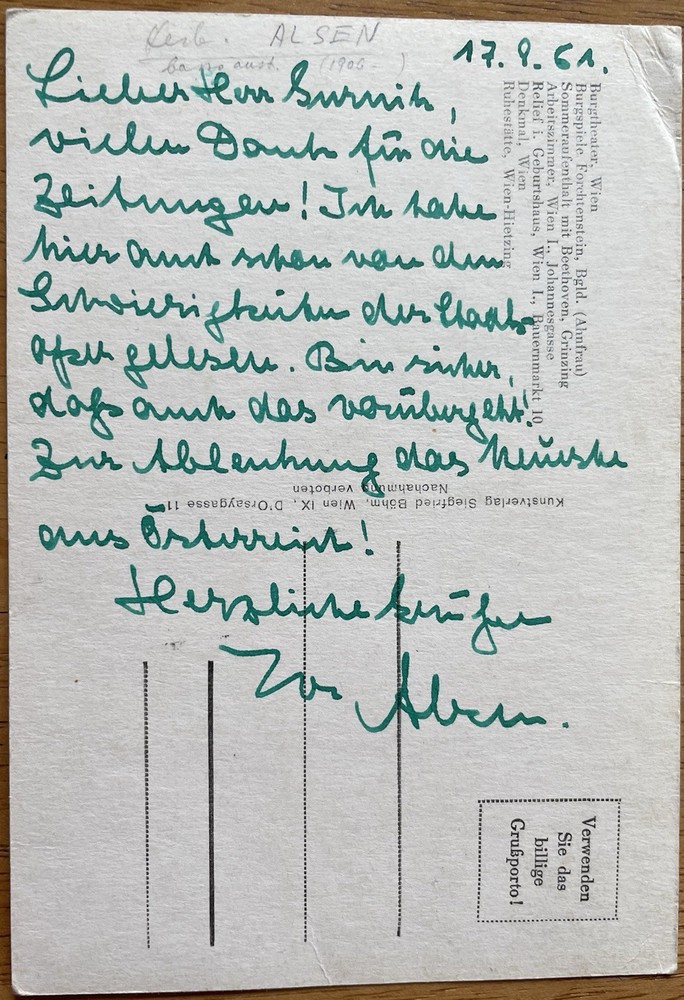 Herb. ALSEN
(1906- )
17.9.61.
Lieber Herr Gurnik,
vielen Dank für die
Zeitungen! Ich habe
hier auch schon von den
Schwierigkeiten der Staats-
oper gelesen. Bin sicher,
daß auch das vorübergeht!
Zur Ablenkung das Neueste
aus Österreich!
Herzliche Grüße
Ihr Alsen.
Burgtheater, Wien
Burgspiele Forchtenstein, Bgld. (Ahnfrau)
Sommeraufenthalt mit Beethoven, Grinzing
Arbeitszimmer, Wien I., Johannesgasse
Relief i. Geburtshaus, Wien I., Bauernmarkt 10
Denkmal, Wien
Ruhestätte, Wien-Hietzing
Kunstverlag Siegfried Böhm, Wien IX., D'Orsaygasse 11
Nachahmung verboten
Verwenden
Sie das
billige
Grußporto!